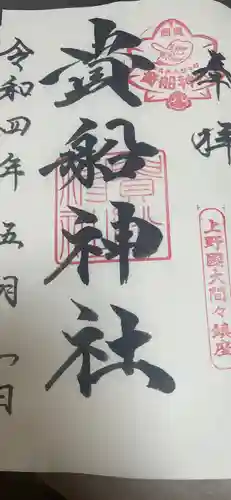 奉拝
上野國大間々鎮座
貴船神社
令和四年五月一日